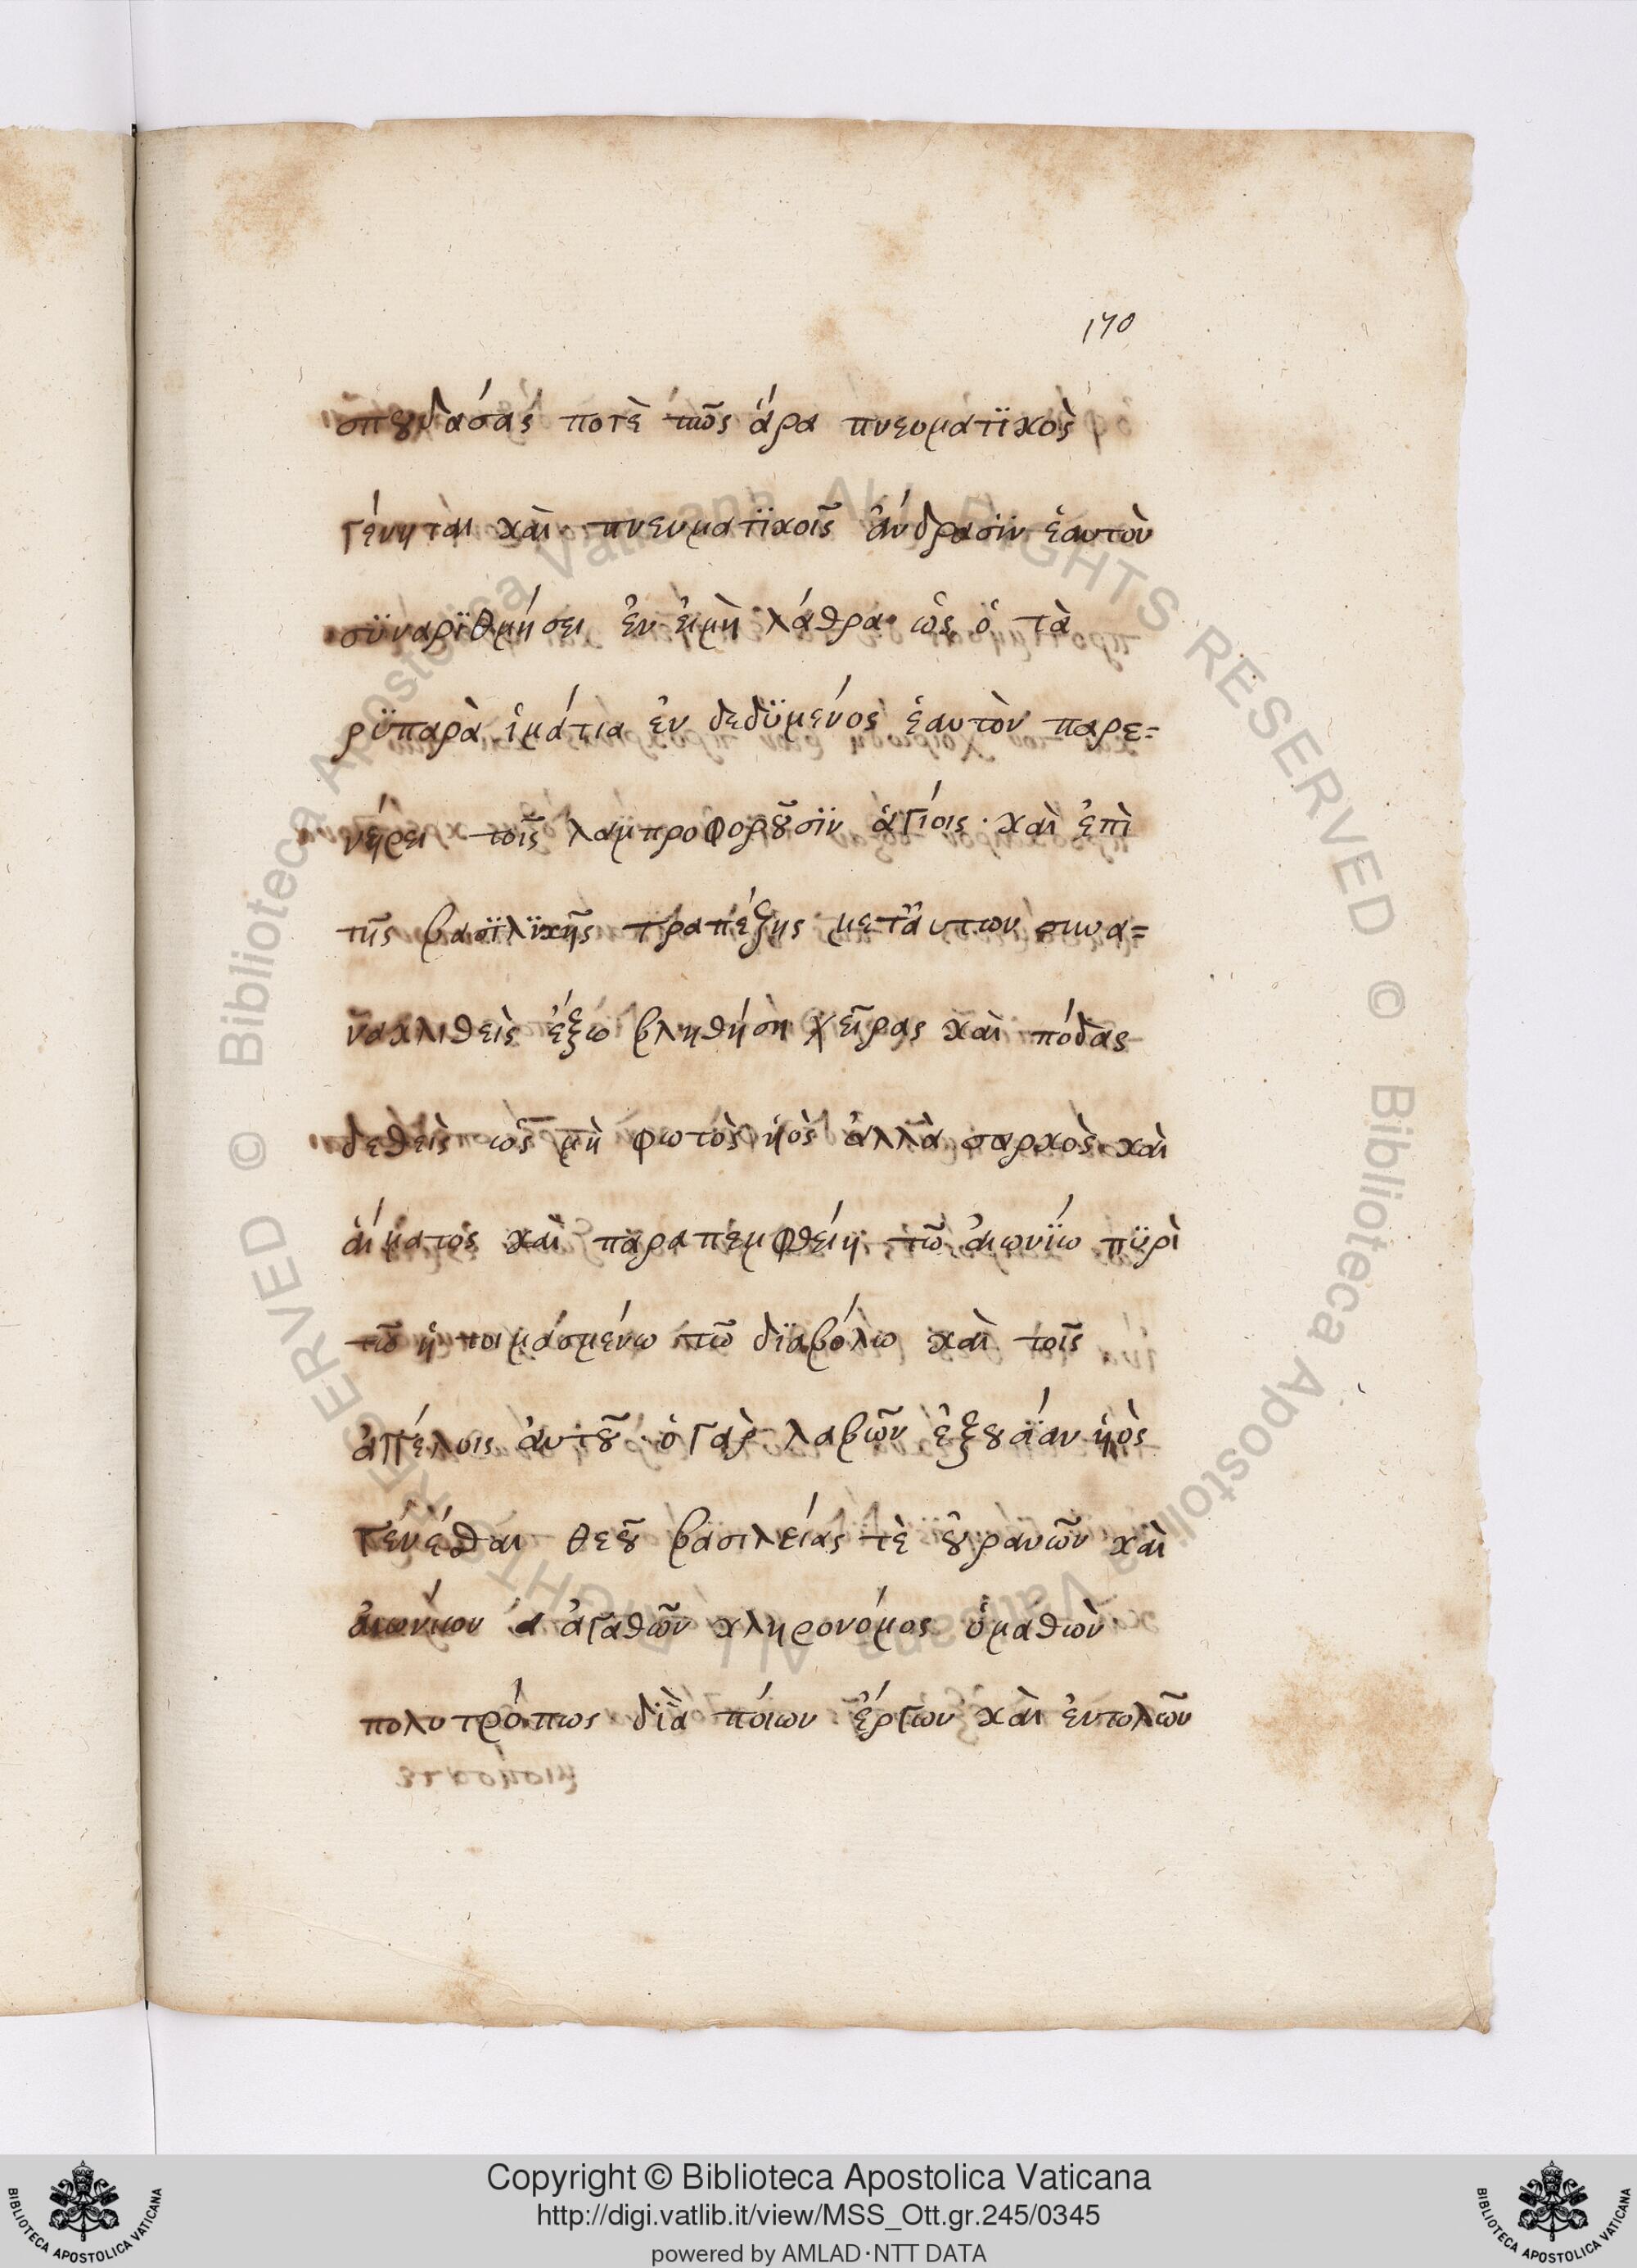 170
σπουδάσας ποτὲ πῶς ἄρα πνευματϊκὸς
γένηται καὶ πνευματϊκοῖς ἀνδρασϊν ἑαυτὸν
σϋναρϊθμήσει ἐν εἰμὴ λάθρα· ὡς ὁ τὰ
ρϋπαρὰ ἱμάτια ἐν δεδϋμένος ἑαυτὸν παρε=
νείρει τοῖς λαμπροφοροῦσϊν ἁγίοις· καὶ ἐπὶ
τῆς βασϊλϊκῆς τραπέζης μετἀυτων συνα=
νακλιθεὶς ἔξω βληθήση χεῖρας καὶ πόδας
δεθεὶς ὡς μὴ φωτὸς ὑιὸς ἀλλὰ σαρκὸς καὶ
ἁίματος καὶ παραπεμφθείη τῶ ἀιωνίω πϋρὶ
τῶ ἡτοιμασμένω τῶ δϊαβόλω καὶ τοῖς
ἀγγέλοις ἀυτοῦ· ὁ γὰρ λαβῶν ἐξουσίαν ὑιὸς
γενέσθαι θεοῦ βασιλείας τὲ οὐρανῶν καὶ
ἀιωνίων ἀγαθῶν κληρονόμος ὁμαθὼν
πολυτρόπως δϊὰ ποίων ἔργων καὶ ἐντολῶν
Copyright © Biblioteca Apostolica Vaticana
http://digi.vatlib.it/view/MSS_Ott.gr.245/0345
powered by AMLAD·NTT DATA
BIBLIOTECA APOSTOLICA VATICANA
BIBLIOTECA APOSTOLICA VATICANA
© Biblioteca Apostolica Vaticana ALL RIGHTS RESERVED © Biblioteca Apostolica Vaticana ALL RIGHTS RESERVED